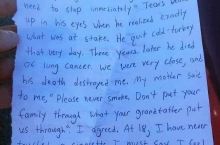 need to stop immediately" Tears being
up in his eyes when he realized exactly
what was at stake. He quit cold-turkey
that very day. Three years later he died
of lung cancer. We were very close, and
his death destroyed me. My mother said
to me, "Please never smoke. Don't put your
family through what your grandfather put
us through". I agreed. At 18, I have never
a cigarette I must say, I feel